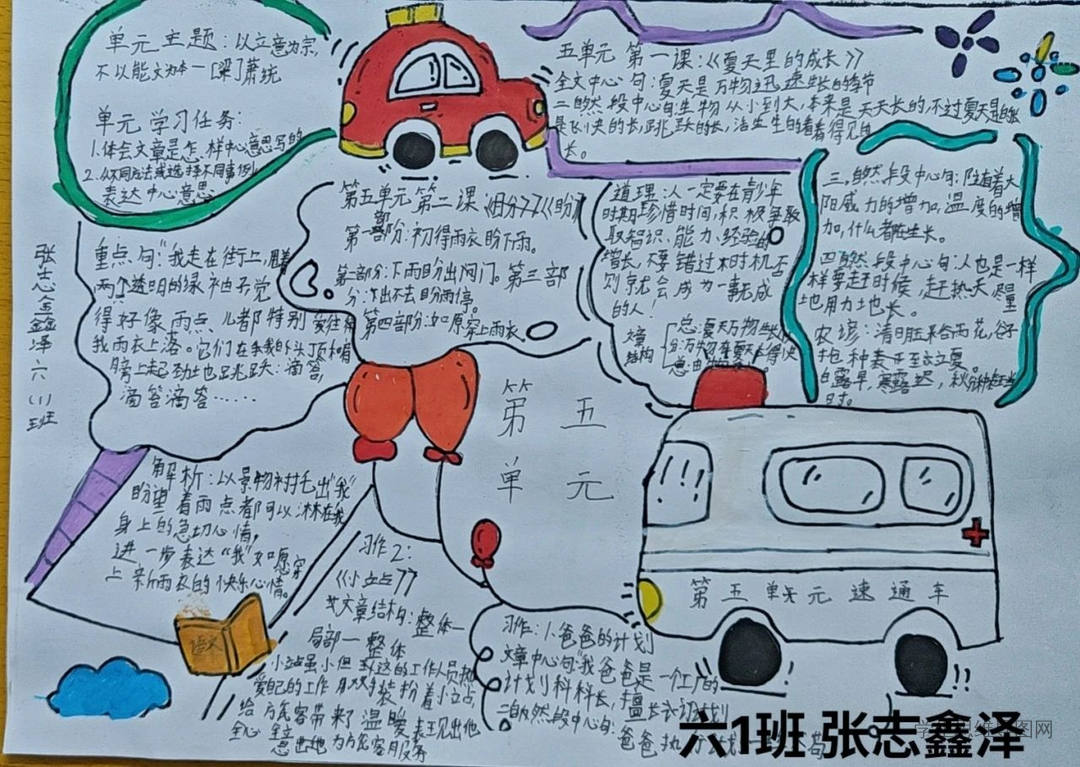 单元主题：以立意为宗，
不以能文为本一[梁]萧统
单元学习任务：
1.体会文章是怎样中心意思写的
2.从不同方法或选择不同事例，
表达中心意思
五单元 第一课：《夏天里的成长》
全文中心句：夏天是万物迅速生长的季节
二自然段中心句生物从小到大，本来是天天长的，不过夏天是的长
是飞快的长，跳跃的长，活生生的看得见的
长。
第五单元第二课
第一部分：初得雨衣盼下雨。
第二部分：下雨盼出门。第三部
分：出不去盼雨停。
第四部分：如愿穿上雨衣
道理：人一定要在青少年
时期珍惜时间，积极争取
取知识、能力、经验的
增长，不要错过时机否
则就会成为一事无成
的人！
文章
结构
总：夏天万物生长
三自然段中心句：随着太
阳威力的增加，温度的增
加，什么都在生长。
四自然段中心句：人也是一样
样要赶时候，赶热天尽量
地用力地长。
农谚：清明
种 立夏。
白露早，寒露迟，秋分种
张志金鑫泽六(1)班
重点句"我走在街上，
两个透明的绿袖子，觉
得好像雨点儿都特别爱往
我雨衣上落。它们在我的头顶和肩
膀上起劲地跳跃：滴答，
滴答滴答……
第五
单元
解析：以景物衬托出"我"
盼望着雨点都可以淋在我
身上的急切心情，
进一步表达"我"如愿穿
上新雨衣的快乐心情。
语文
习作2：
《小站》
文章结构：整体一
局部一整体
小站虽小但这的工作人员热
爱自己的工作用双手装扮着小站，
给旅客带来了温暖表现出他
全心全意 地为旅客服务
习作：小爸爸的计划
文章中心句"我爸爸是一个工厂的
计划科科长，擅长计划
二自然段中心句：
爸爸执
第五单元速通车
六1班 张志鑫泽